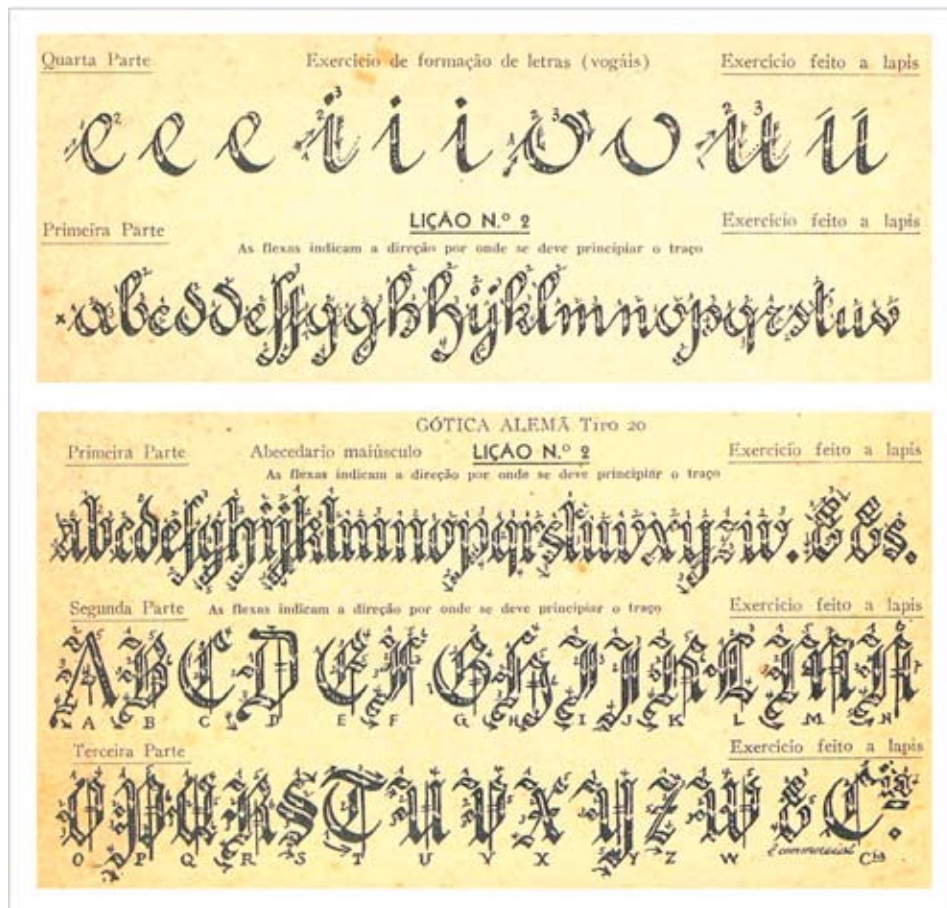 Quarta Parte Exercicio de formação de letras (vogáis) Exercicio feito a lapis
e e e i i i o o u u
Primeira Parte LIÇÃO N.º 2 Exercicio feito a lapis
As flexas indicam a direção por onde se deve principiar o traço
a b c d d e f f g g h h i j k l m n o p q r s t u v
GÓTICA ALEMÃ Tipo 20
Primeira Parte Abecedario maiúsculo LIÇÃO N.º 2 Exercicio feito a lapis
As flexas indicam a direção por onde se deve principiar o traço
a b c d e f g h i j k l m n o p q r s t u v x y z w .
Segunda Parte As flexas indicam a direção por onde se deve principiar o traço Exercicio feito a lapis
A B C D E F G H I J K L M N
A B C D E F G H I J K L M N
Terceira Parte Exercicio feito a lapis
O P Q R S T U V X Y Z W & C
O P Q R S T U V X Y Z W É commercial Cia